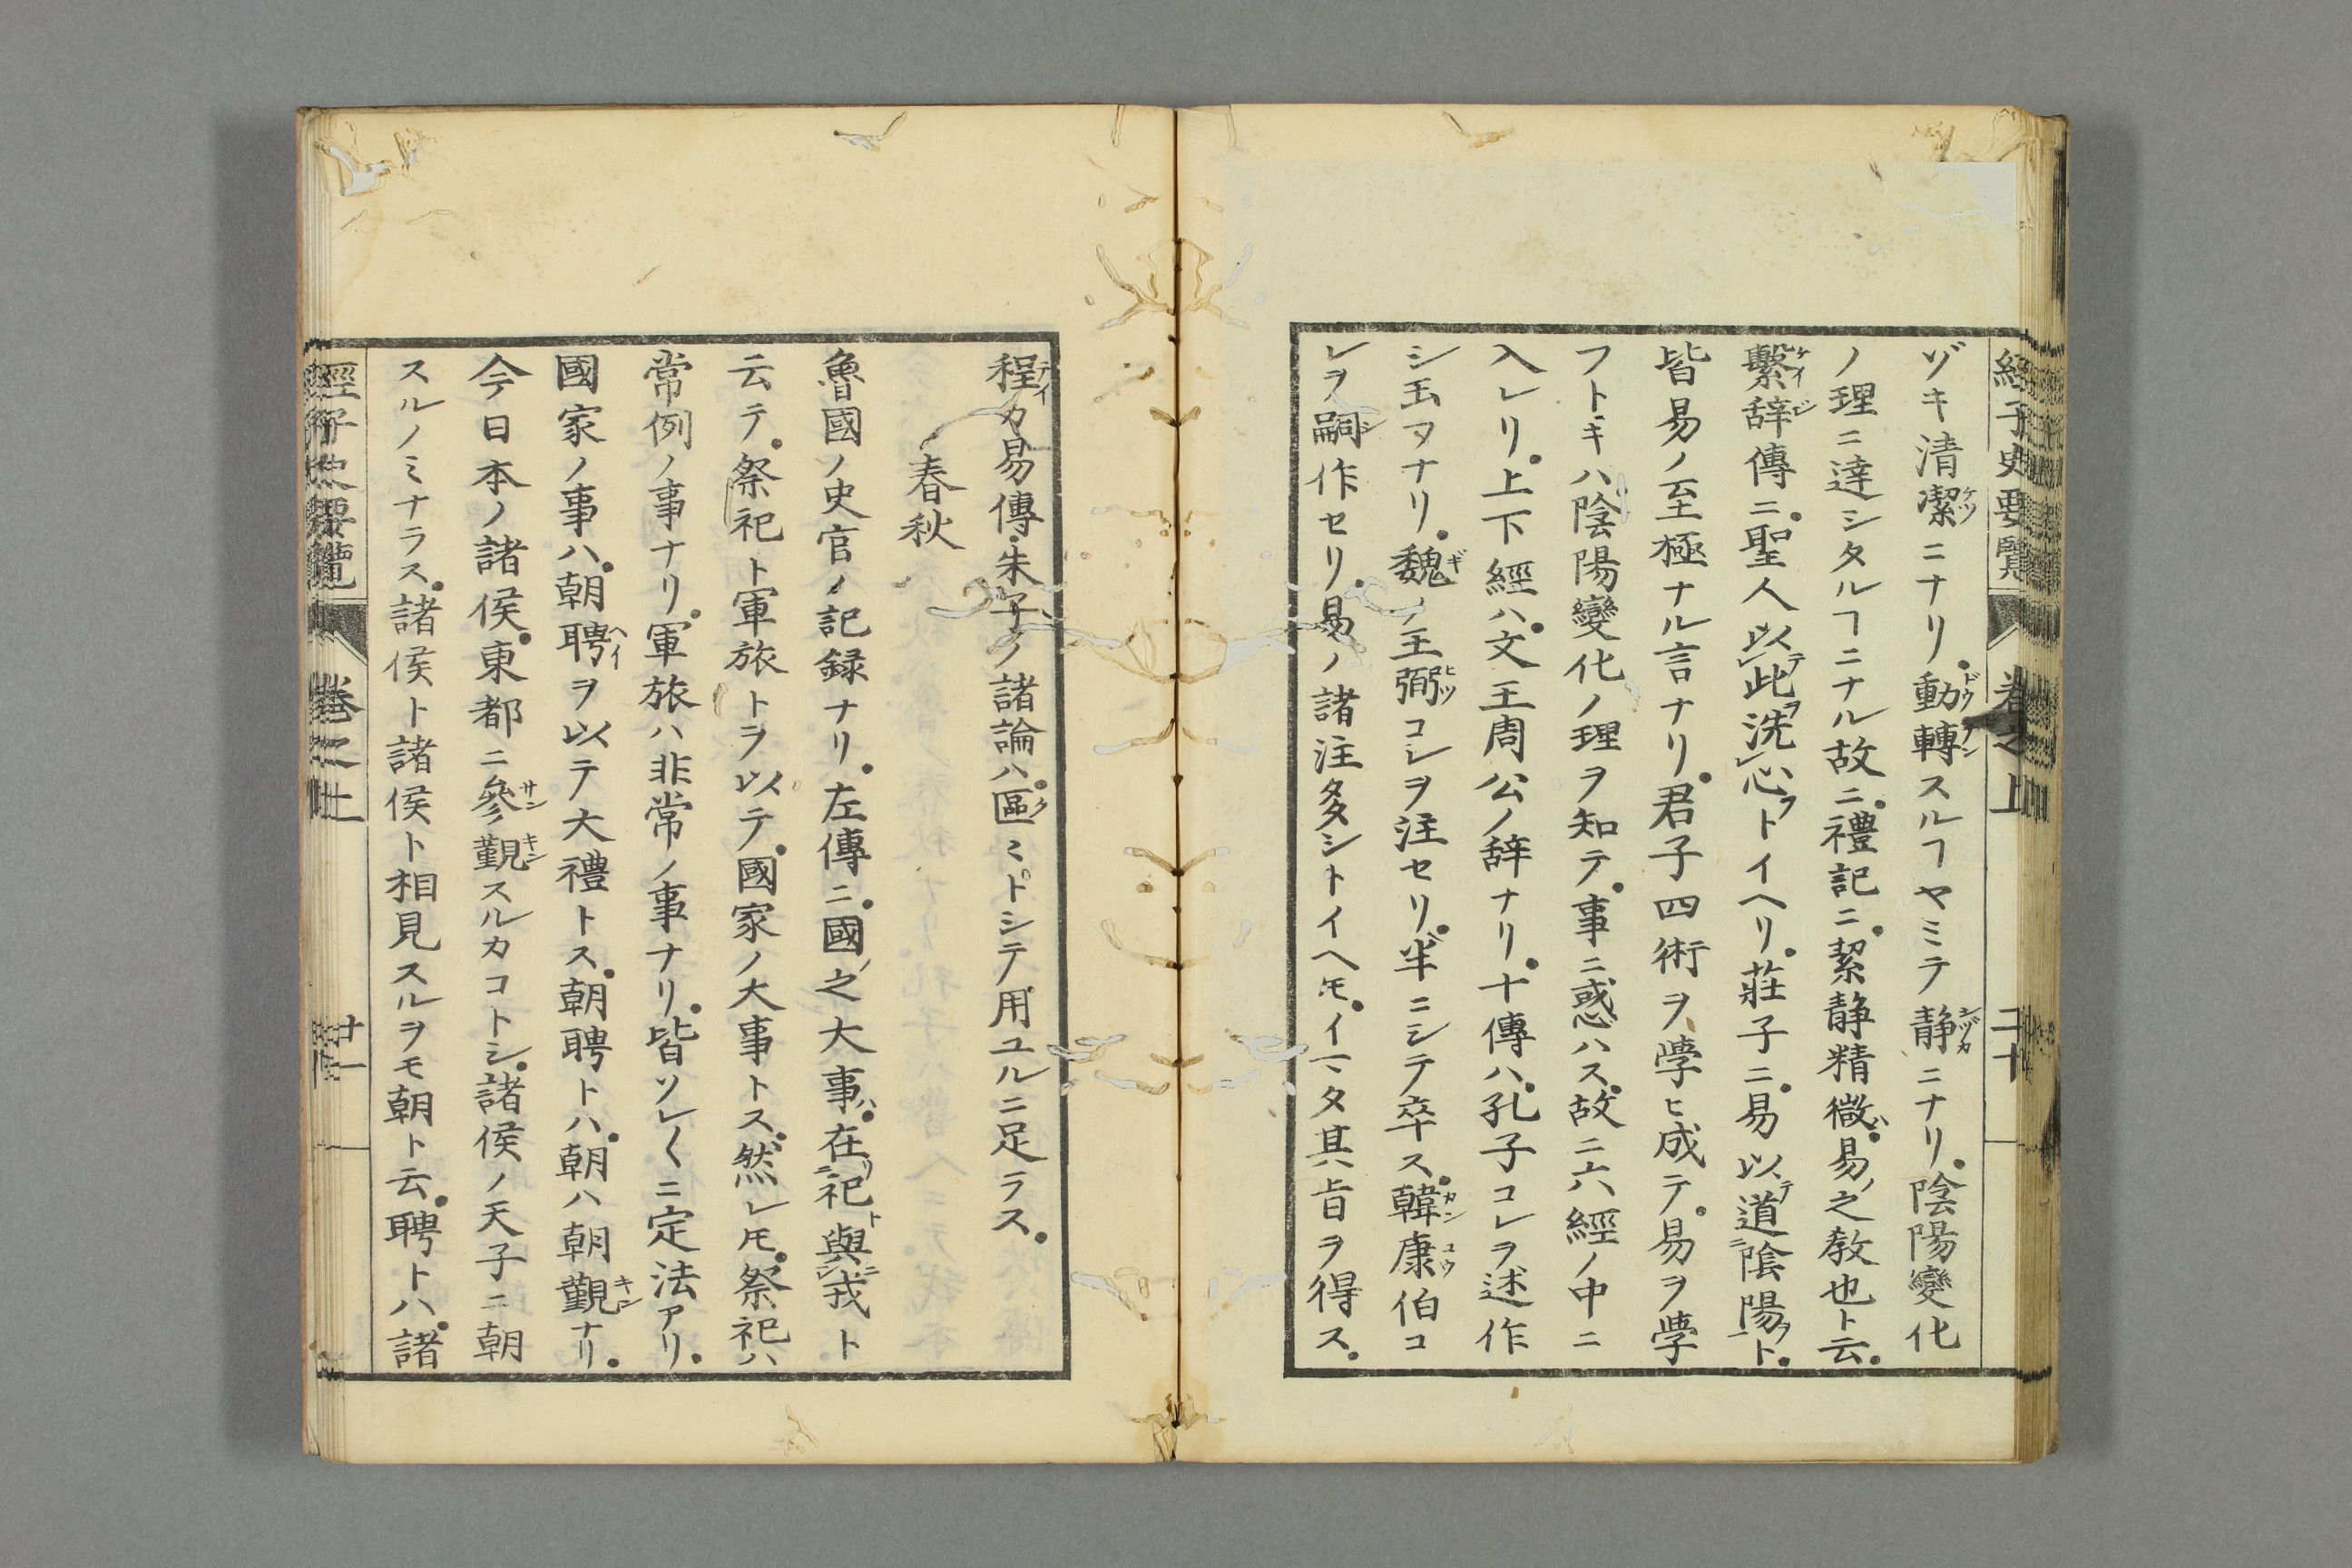 經子史要覽 卷之上 二十
ヅキ清潔ニナリ。動轉スルヿヤミテ靜ニナリ。陰陽變化
ノ理ニ達シタルヿニナル故ニ。禮記ニ。絜靜精微。易之教也ト云。
繫辞傳ニ。聖人以此洗心トイヘリ。莊子ニ。易以道陰陽ト。
皆易ノ至極ナル言ナリ。君子四術ヲ學ヒ成テ。易ヲ學
フトキハ陰陽變化ノ理ヲ知テ。事ニ惑ハス。故ニ六經ノ中ニ
入レリ。上下經ハ。文王周公ノ辞ナリ。十傳ハ。孔子コレヲ述作
シ玉フナリ。魏ノ王弼コレヲ注セリ。半ニシテ卒ス。韓康伯コ
レヲ嗣作セリ。易ノ諸注多シトイヘ𪜈。イマタ其旨ヲ得ス。
程カ易傳。朱子ノ諸論ハ。區〻トシテ用ユルニ足ラス。
春秋
魯國ノ史官ノ記録ナリ。左傳ニ。國之大事。在祀與戎ト
云テ。祭祀ト軍旅トヲ以テ。國家ノ大事トス。然レ𪜈。祭祀ハ
常例ノ事ナリ。軍旅ハ非常ノ事ナリ。皆ソレ〱ニ定法アリ。
國家ノ事ハ。朝聘ヲ以テ大禮トス。朝聘トハ。朝ハ朝覲ナリ。
今日本ノ諸侯。東都ニ參覲スルカコトシ。諸侯ノ天子ニ朝
スルノミナラス。諸侯ト諸侯ト相見スルヲモ朝ト云。聘トハ。諸
經子史要覽 卷之上 廿一